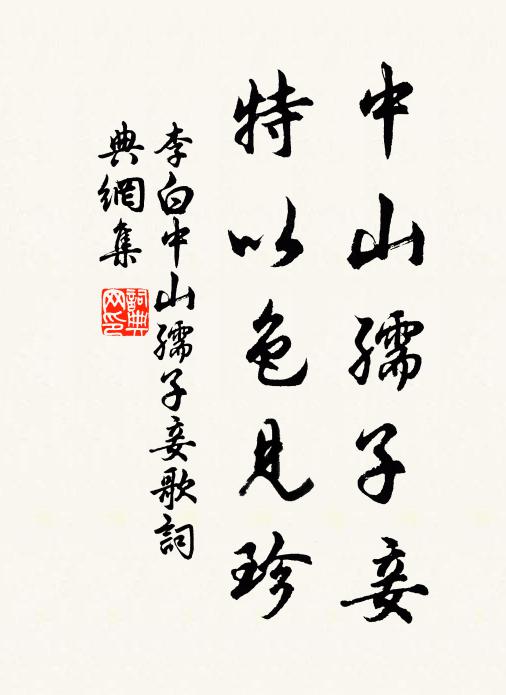 中山孺子妾
特以色見珍
李白中山孺子妾歌詞
典網集
詞典
网印